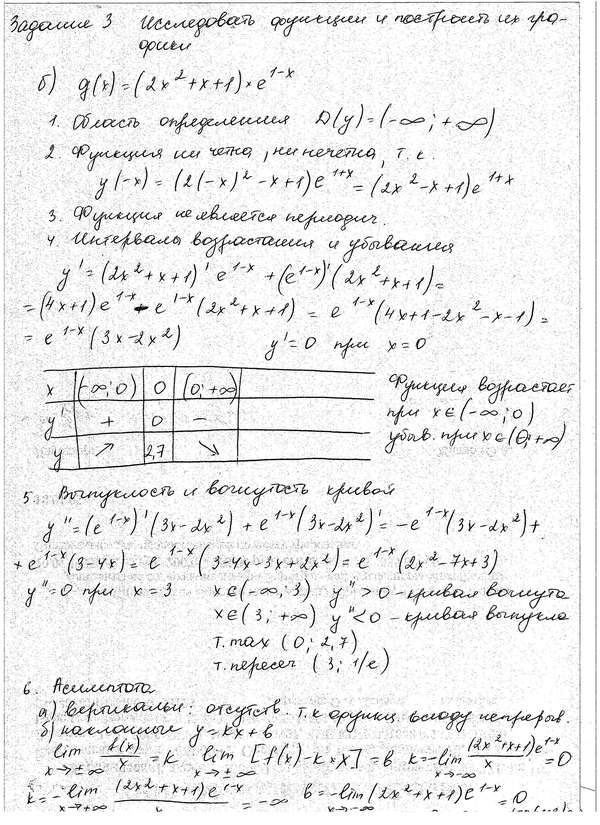 Задание 3 Исследовать функции и построить их гра-
фики
б) g(x)=(2x²+x+1)×e^{1-x}
1. Область определения D(y)=(-∞;+∞)
2. Функция ни четна, ни нечетна, т.к.
y(-x)=(2(-x)²-x+1)e^{1+x}=(2x²-x+1)e^{1+x}
3. Функция не является периодич.
4. Интервалы возрастания и убывания
y'=(2x²+x+1)'e^{1-x}+(e^{1-x})'(2x²+x+1)=
=(4x+1)e^{1-x}-e^{1-x}(2x²+x+1)=e^{1-x}(4x+1-2x²-x-1)=
=e^{1-x}(3x-2x²) y'=0 при x=0
x (-∞;0) 0 (0;+∞)
y' + 0 -
y ↗ 2,7 ↘
Функция возрастает
при x∈(-∞;0)
убыв. при x∈(0;+∞)
5 Выпуклость и вогнутость кривой
y''=(e^{1-x})'(3x-2x²)+e^{1-x}(3x-2x²)'=-e^{1-x}(3x-2x²)+
+e^{1-x}(3-4x)=e^{1-x}(3-4x-3x+2x²)=e^{1-x}(2x²-7x+3)
y''=0 при x=3 x∈(-∞;3) y''>0-кривая вогнута
x∈(3;+∞) y''<0-кривая выпукла
т.max (0;2,7)
т.пересеч (3;1/e)
6. Асимптота
а) вертикальн: отсутств. т.к функц. всюду непрерыв.
б) наклонные y=kx+b
lim_{x→±∞} f(x)/x=k lim_{x→±∞}[f(x)-k×x]=b k=-lim_{x→-∞} (2x²+x+1)e^{1-x}/x=0
k=-lim_{x→+∞} (2x²+x+1)e^{1-x}/x=-∞ b=-lim_{x→-∞}(2x²+x+1)e^{1-x}=0